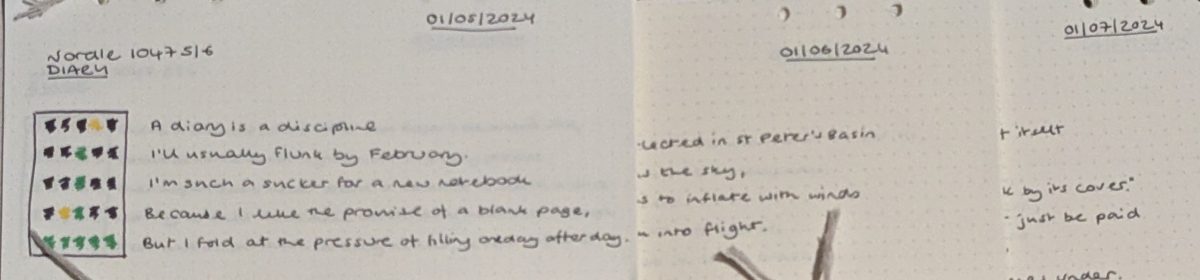 01/05/2024
Nordle 1047 5/6
DIARY
A diary is a discipline
I'll usually flunk by February.
I'm such a sucker for a new notebook
Because I like the promise of a blank page,
But I fold at the pressure of filling one day after day.
01/06/2024
ucted in St Peter's Basin
s the sky,
s to inflate with winds
into flight.
01/07/2024
t itself
k by its cover."
just be paid
under.